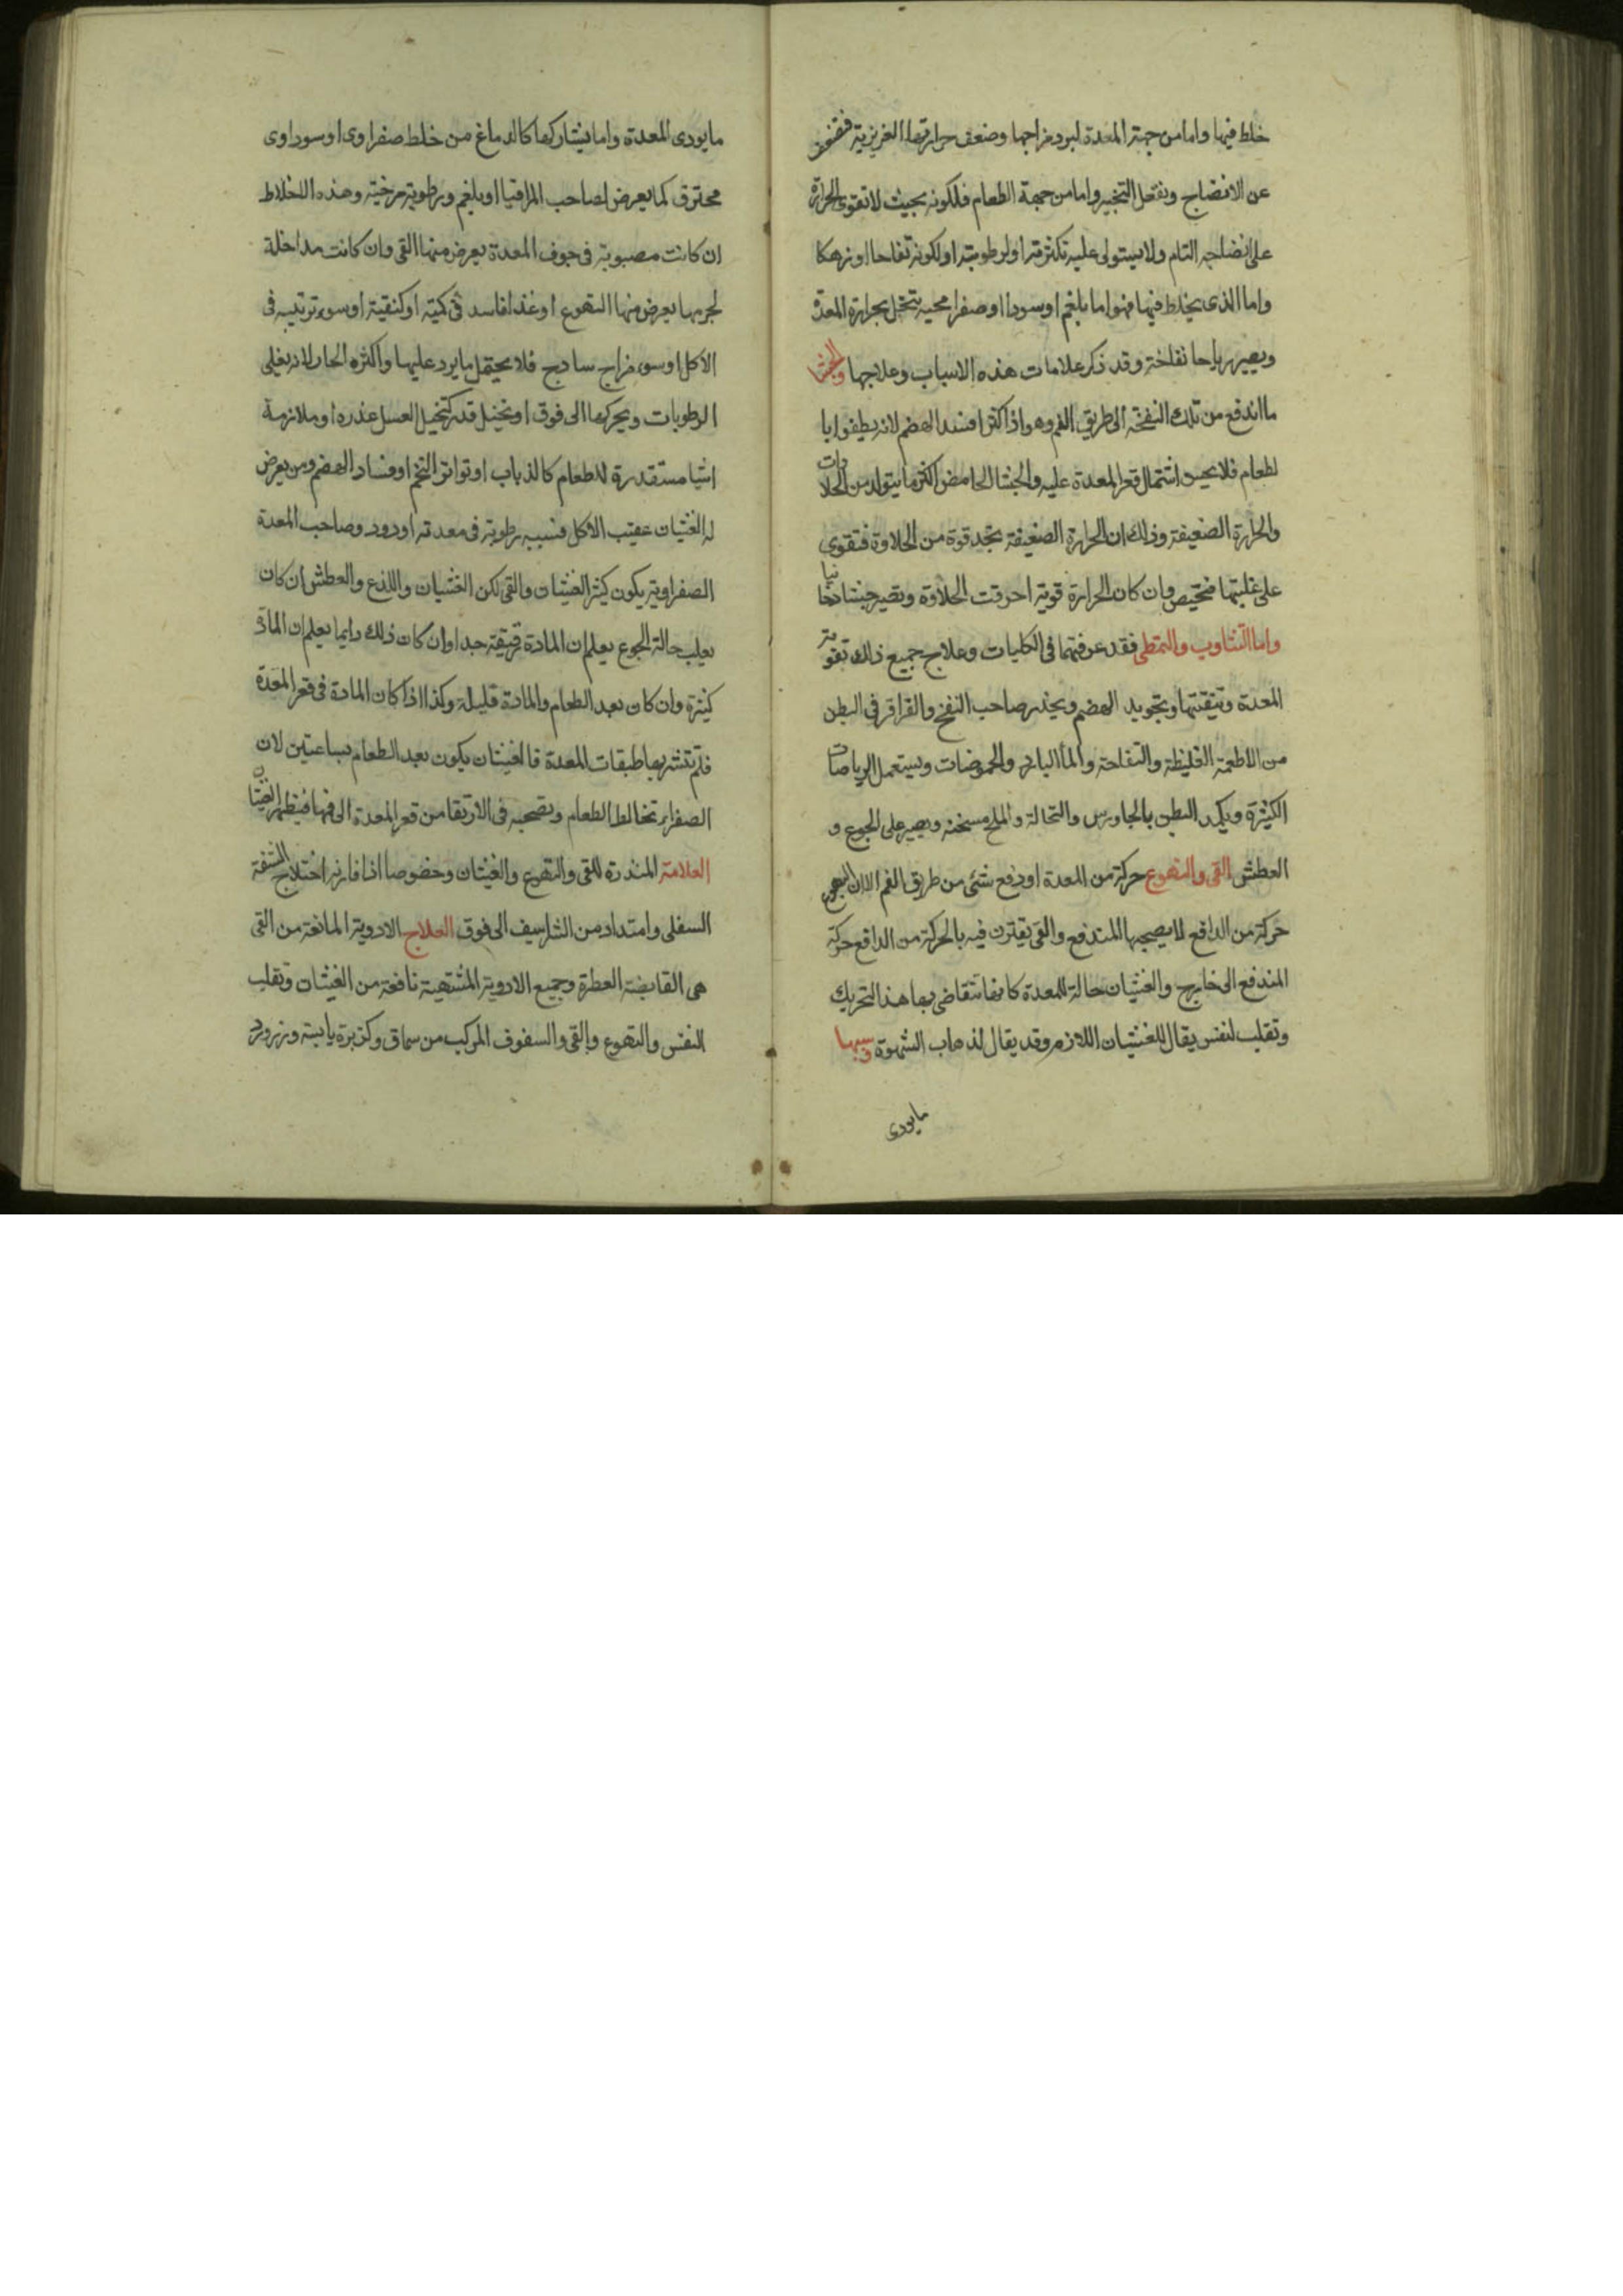 خلط فيها واما من جهة المعدة لبرد مزاجها وضعف حرارتها الغريزية فتضعف
عن الانضاج وتفعل التبخير واما من جهة الطعام فلكونه بحيث لا تقوى الحرارة
على انضاجه التام ولا يستولى عليه لكثرته او لرطوبته او لكونه نفاخا او
واما الذى يخلط فيها فهو اما بلغم او سودا او صفرا محيه تتخل بحرارة المعدة
ويصير رياحا نفاخة وقد ذكر علامات هذه الاسباب وعلاجها والجشا
ما اندفع من تلك النفخة الى طريق الفم وهو اذا اكثر افسد الهضم لانه يطفوا با
لطعام فلا يحسن اشتمال قعر المعدة عليه والجشا الحامض اكثر ما يتولد من الحلاوات
والحرارة الضعيفة وذلك ان الحرارة الضعيفة تجد قوة من الحلاوة فتقوى
على غليتها فتحمض وان كان الحرارة قوية احرقت الحلاوة وتصير جشا دخانيا
واما التثاوب والتمطى فقد عرفتهما فى الكليات وعلاج جميع ذلك تقوية
المعدة وتنقيتها وتجويد الهضم ويحذر صاحب النفخ والقراقر فى البطن
من الاطعمة الغليظة والنفاخة والماء البارد والحموضات ويستعمل الرياضات
الكثيرة ويكمد البطن بالجاورس والنخالة والملح مسخنه ويصبر على الجوع و
العطش القى والتهوع حركة من المعدة او دفع شئى من طريق الفم الا ان التهوع
حركة من الدافع لا يصحبها المندفع والقى يقترن فيه بالحركة من الدافع حركة
المندفع الى خارج والغثيان حالة للمعدة كانها تتقاضى بها هذا التحريك
وتقلب لنفس يقال للغثيان اللازم وقد يقال لذهاب الشهوة وسببها
مايودى
مايودى المعدة واما يشاركها كالدماغ من خلط صفراوى او سوداوى
محترق كما يعرض لصاحب المراقيا او بلغم ورطوبة مرخية وهذه الاخلاط
ان كانت مصبوبة فى جوف المعدة يعرض منها القى وان كانت مداخلة
لجرمها يعرض منها التهوع او غذا فاسد فى كميته او كيفيته او سوء ترتيبه فى
الاكل او سوء مزاج سادج فلا يحتمل ما يرد عليها واكثره الحار لانه يغلى
الرطوبات ويحركها الى فوق او تخيل قذر كتخيل العسل عذره او ملازمة
اشيا مستقدرة للطعام كالذباب او تواتر التخم او فساد الهضم ومن يعرض
له الغثيان عقيب الاكل فسببه رطوبة فى معدته او دود وصاحب المعدة
الصفراوية يكون كثير الغثيان والقى لكن الغثيان واللذع والعطش ان كان
يغلب حالة الجوع يعلم ان المادة رقيقة جدا وان كان ذلك دايما يعلم ان المادة
كثيرة وان كان بعد الطعام والمادة قليلة وكذا اذا كان المادة فى قعر المعدة
فلم تتشربها طبقات المعدة فالغثيان يكون بعد الطعام بساعتين لان
الصفراء تخالط الطعام وتصحبه فى الارتقا من قعر المعدة الى فمها فيظهر الغثيان
العلامة المنذرة للقى والتهوع والغثيان وخصوصا اذا قارنه اختلاج الشفة
السفلى وامتداد من الشراسيف الى فوق العلاج الادوية المانعة من القى
هى القابضة العطرة وجميع الادوية المشتهية نافعة من الغثيان وتقلب
النفس والتهوع والقى والسفوف المركب من سماق وكزبرة يابسة وزرورد